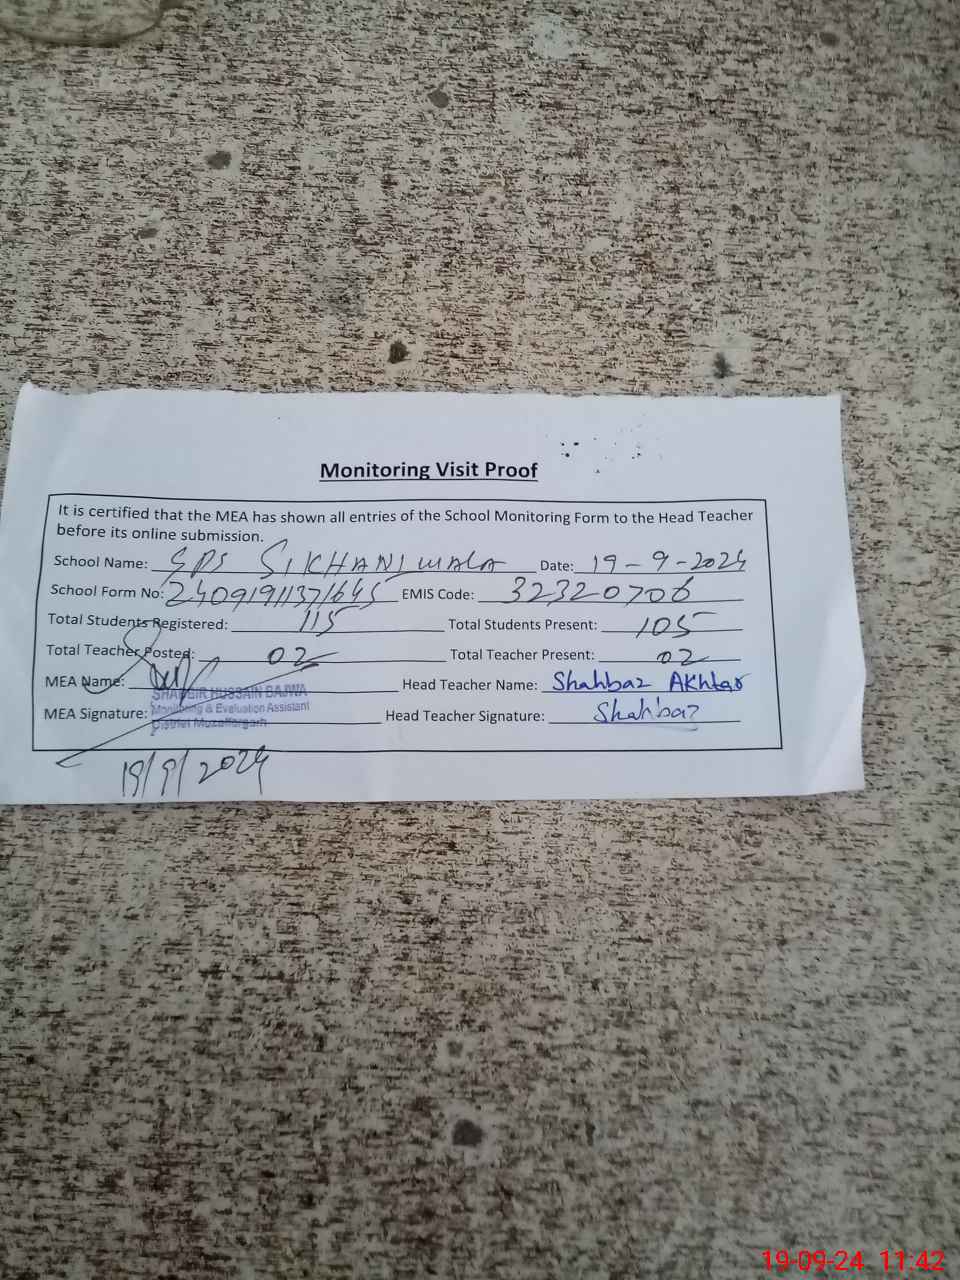 Monitoring Visit Proof
It is certified that the MEA has shown all entries of the School Monitoring Form to the Head Teacher
before its online submission.
School Name: GPS SIKHANI WALA Date: 19-9-2024
School Form No: 24091911371645 EMIS Code: 32320706
Total Students Registered: 115 Total Students Present: 105
Total Teacher Posted: 02 Total Teacher Present: 02
MEA Name: Head Teacher Name: Shahbaz Akhtar
SHABBIR HUSSAIN BAJWA
Monitoring & Evaluation Assistant
District Muzaffargarh
MEA Signature: Head Teacher Signature: Shahbaz
19/9/2024
19-09-24 11:42